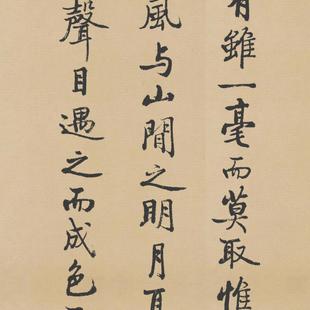 有雖一毫而莫取惟
風与山間之明月耳
聲目遇之而成色